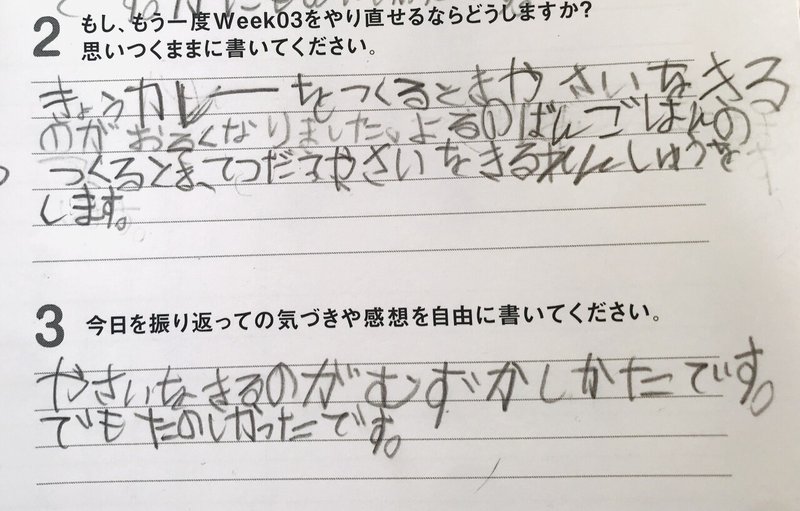 2 もし、もう一度Week03をやり直せるならどうしますか?
思いつくままに書いてください。
きょうカレーをつくるときやさいをきる
のがおそくなりました。よるのばんごはんの
つくるとき、てつだってやさいをきるれんしゅうを
します。
3 今日を振り返っての気づきや感想を自由に書いてください。
やさいをきるのがむずかしかたです。
でもたのしかったです。